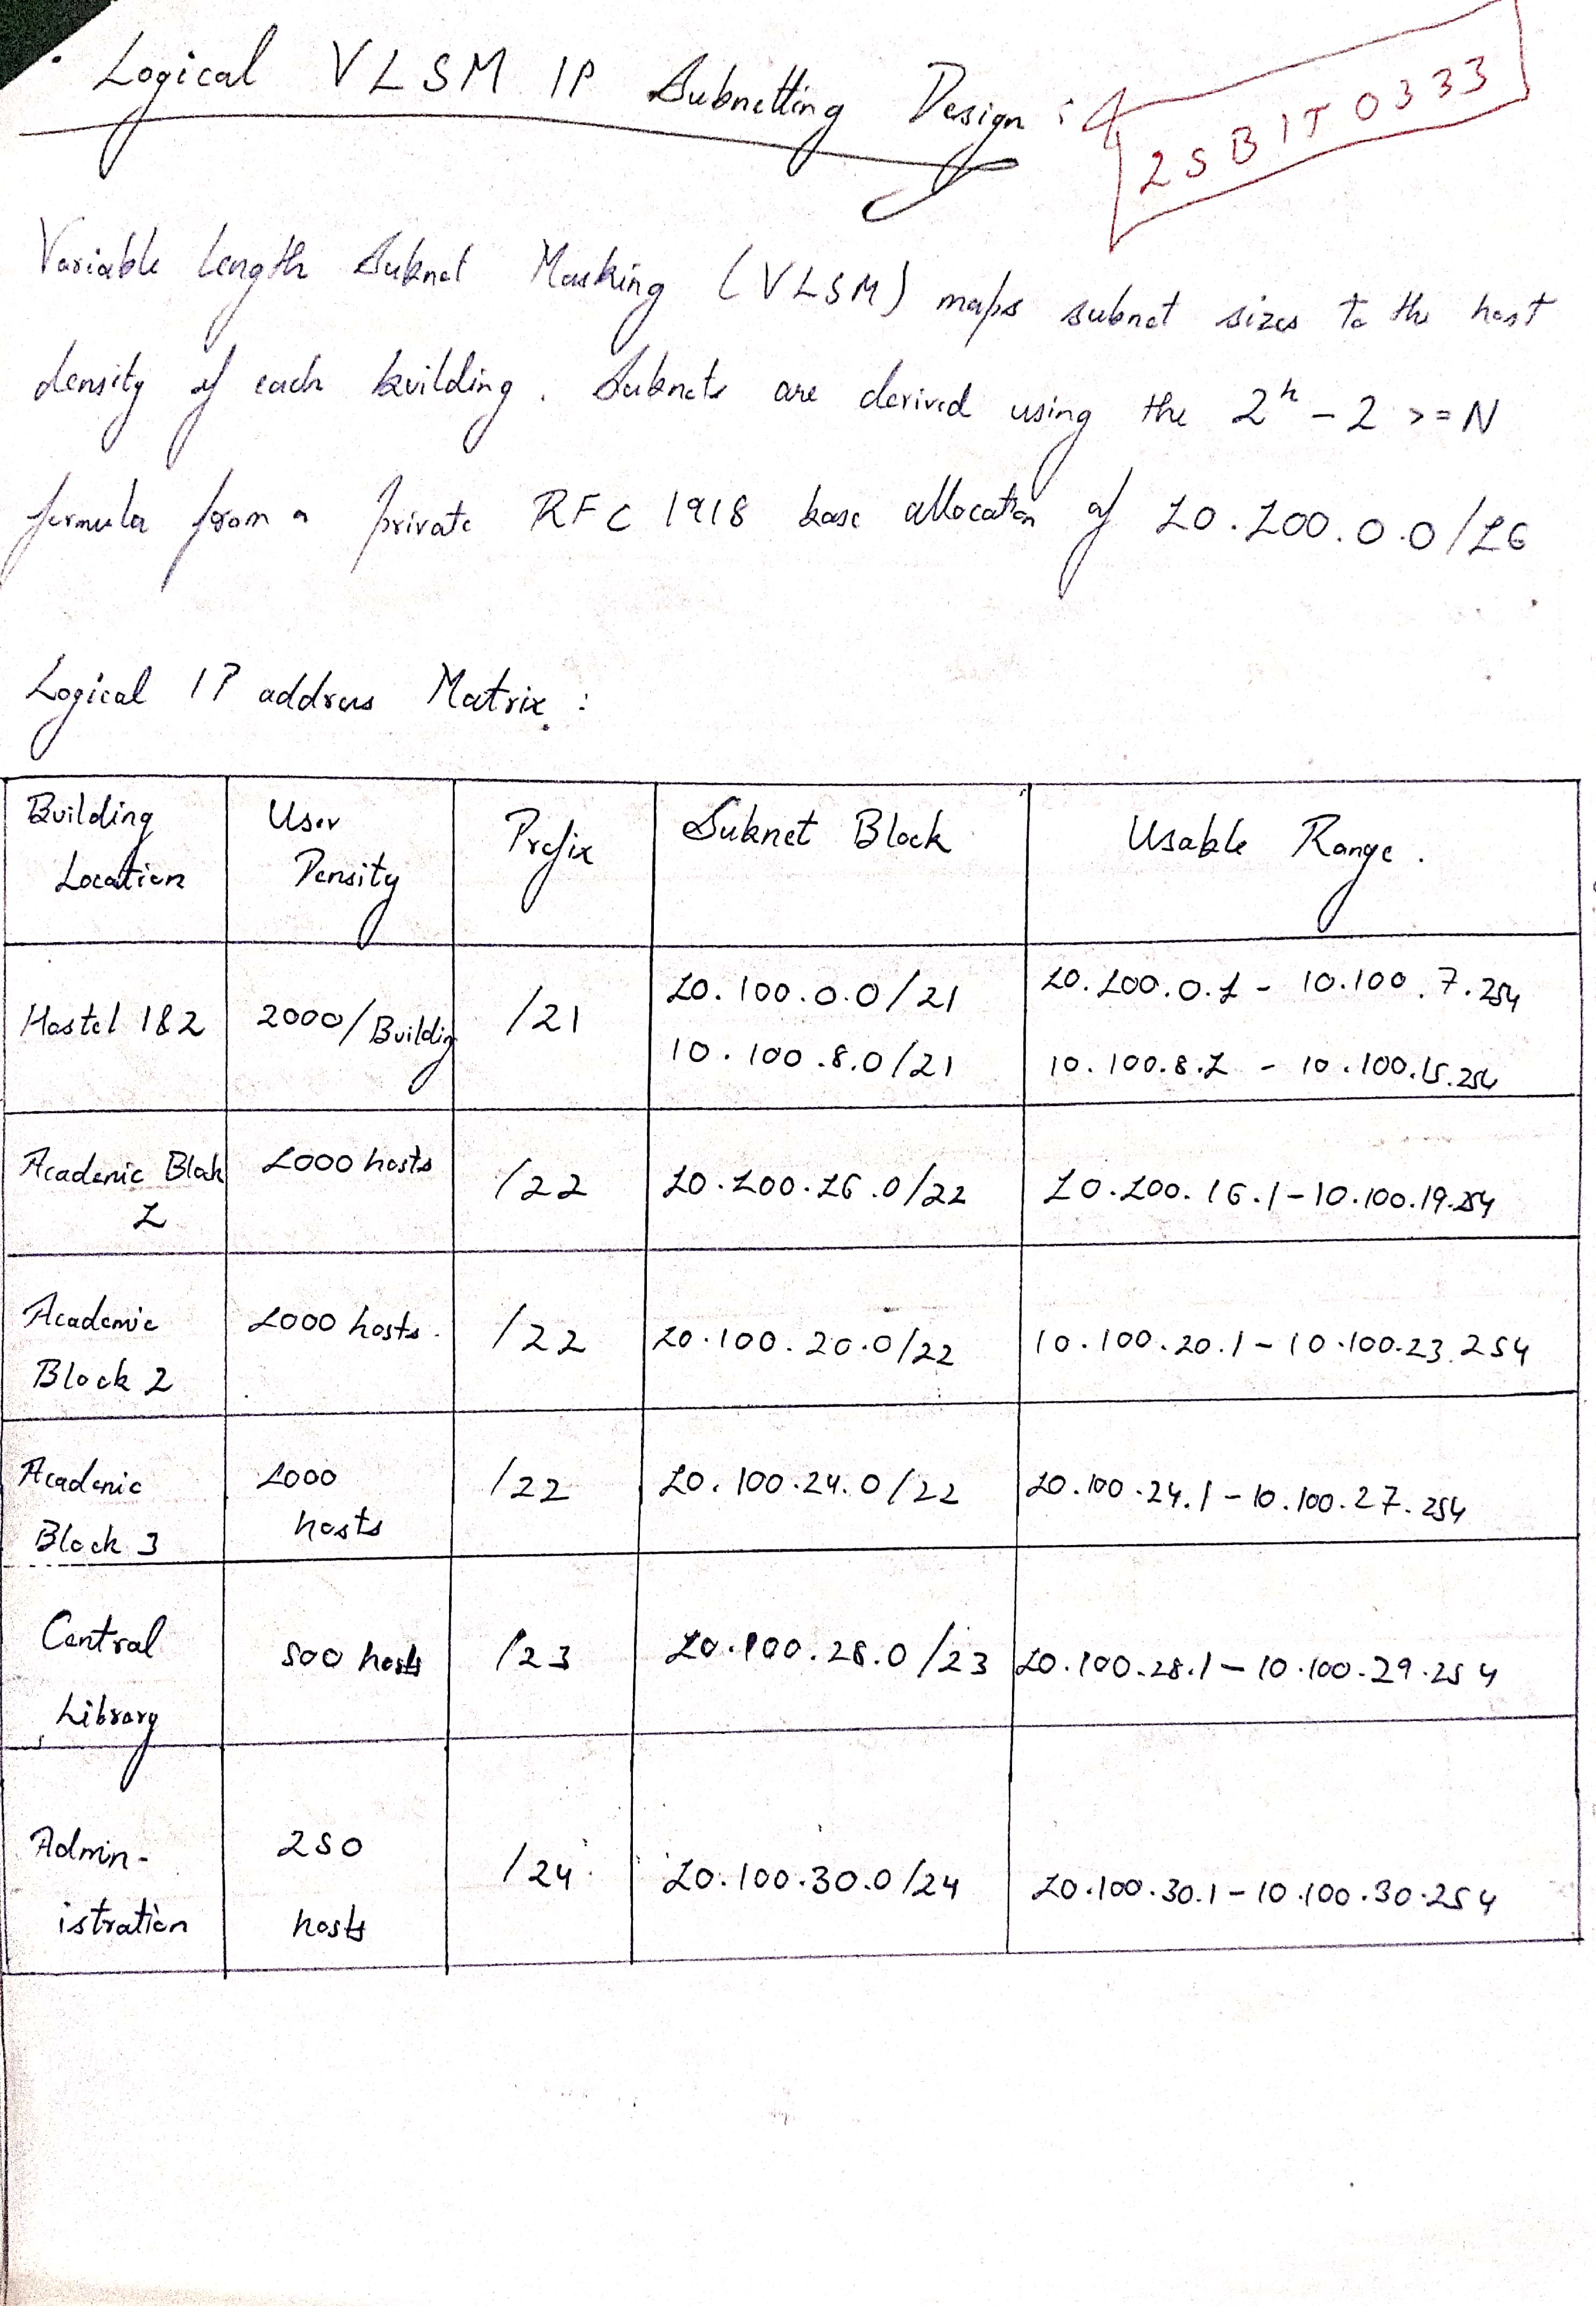 Logical VLSM IP Subnetting Design :
25BIT0333
Variable Length Subnet Masking (VLSM) maps subnet sizes to the host
density of each building. Subnets are derived using the 2^h - 2 >= N
formula from a private RFC 1918 base allocation of 10.100.0.0/16
Logical IP address Matrix :
Building Location | User Density | Prefix | Subnet Block | Usable Range.
Hostel 1&2 | 2000/Building | /21 | 10.100.0.0/21 | 10.100.0.1 - 10.100.7.254
10.100.8.0/21 | 10.100.8.1 - 10.100.15.254
Academic Block 1 | 1000 hosts | /22 | 10.100.16.0/22 | 10.100.16.1 - 10.100.19.254
Academic Block 2 | 1000 hosts. | /22 | 10.100.20.0/22 | 10.100.20.1 - 10.100.23.254
Academic Block 3 | 1000 hosts | /22 | 10.100.24.0/22 | 10.100.24.1 - 10.100.27.254
Central Library | 500 hosts | /23 | 10.100.28.0/23 | 10.100.28.1 - 10.100.29.254
Admin-istration | 250 hosts | /24 | 10.100.30.0/24 | 10.100.30.1 - 10.100.30.254